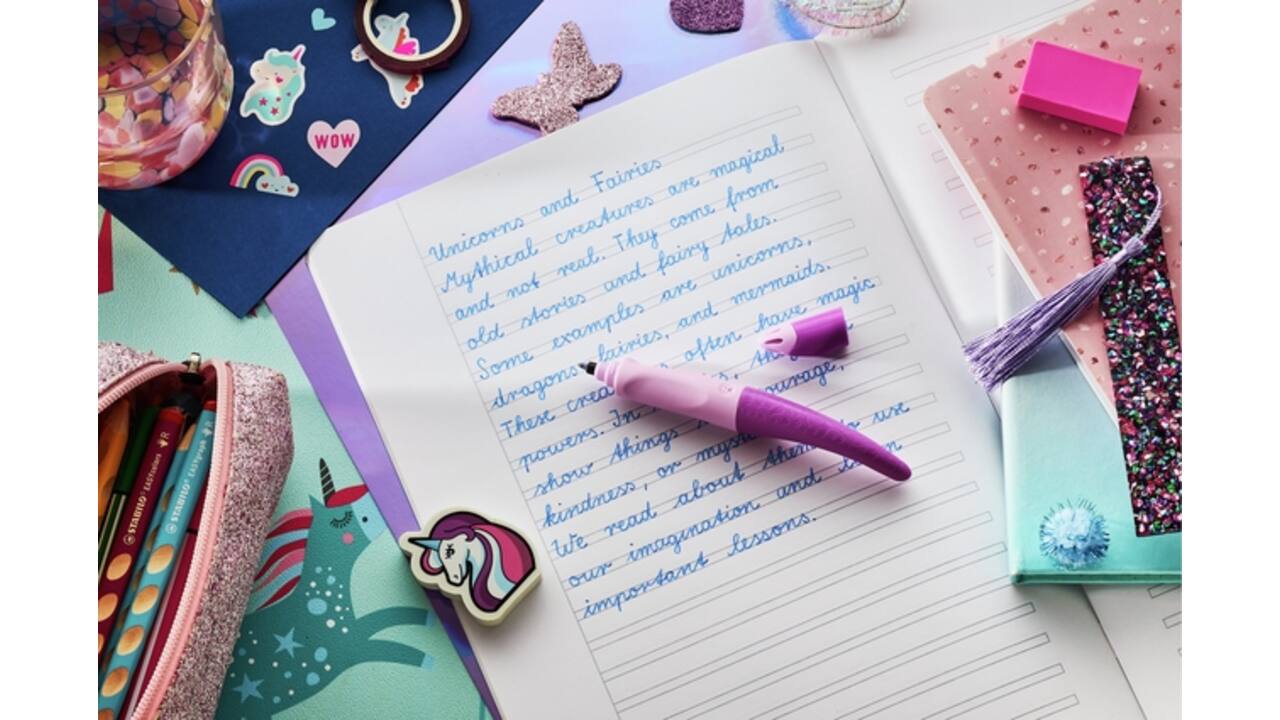 WOW
Unicorns and Fairies
Mythical creatures are magical
and not real. They come from
old stories and fairy tales.
Some examples are unicorns,
dragons, fairies, and mermaids.
These often have magic
powers. In
show things
kindness, or to use
We read about
our imagination and
important lessons.
STABILO EASYcolors R
STABILO EASYgraph R